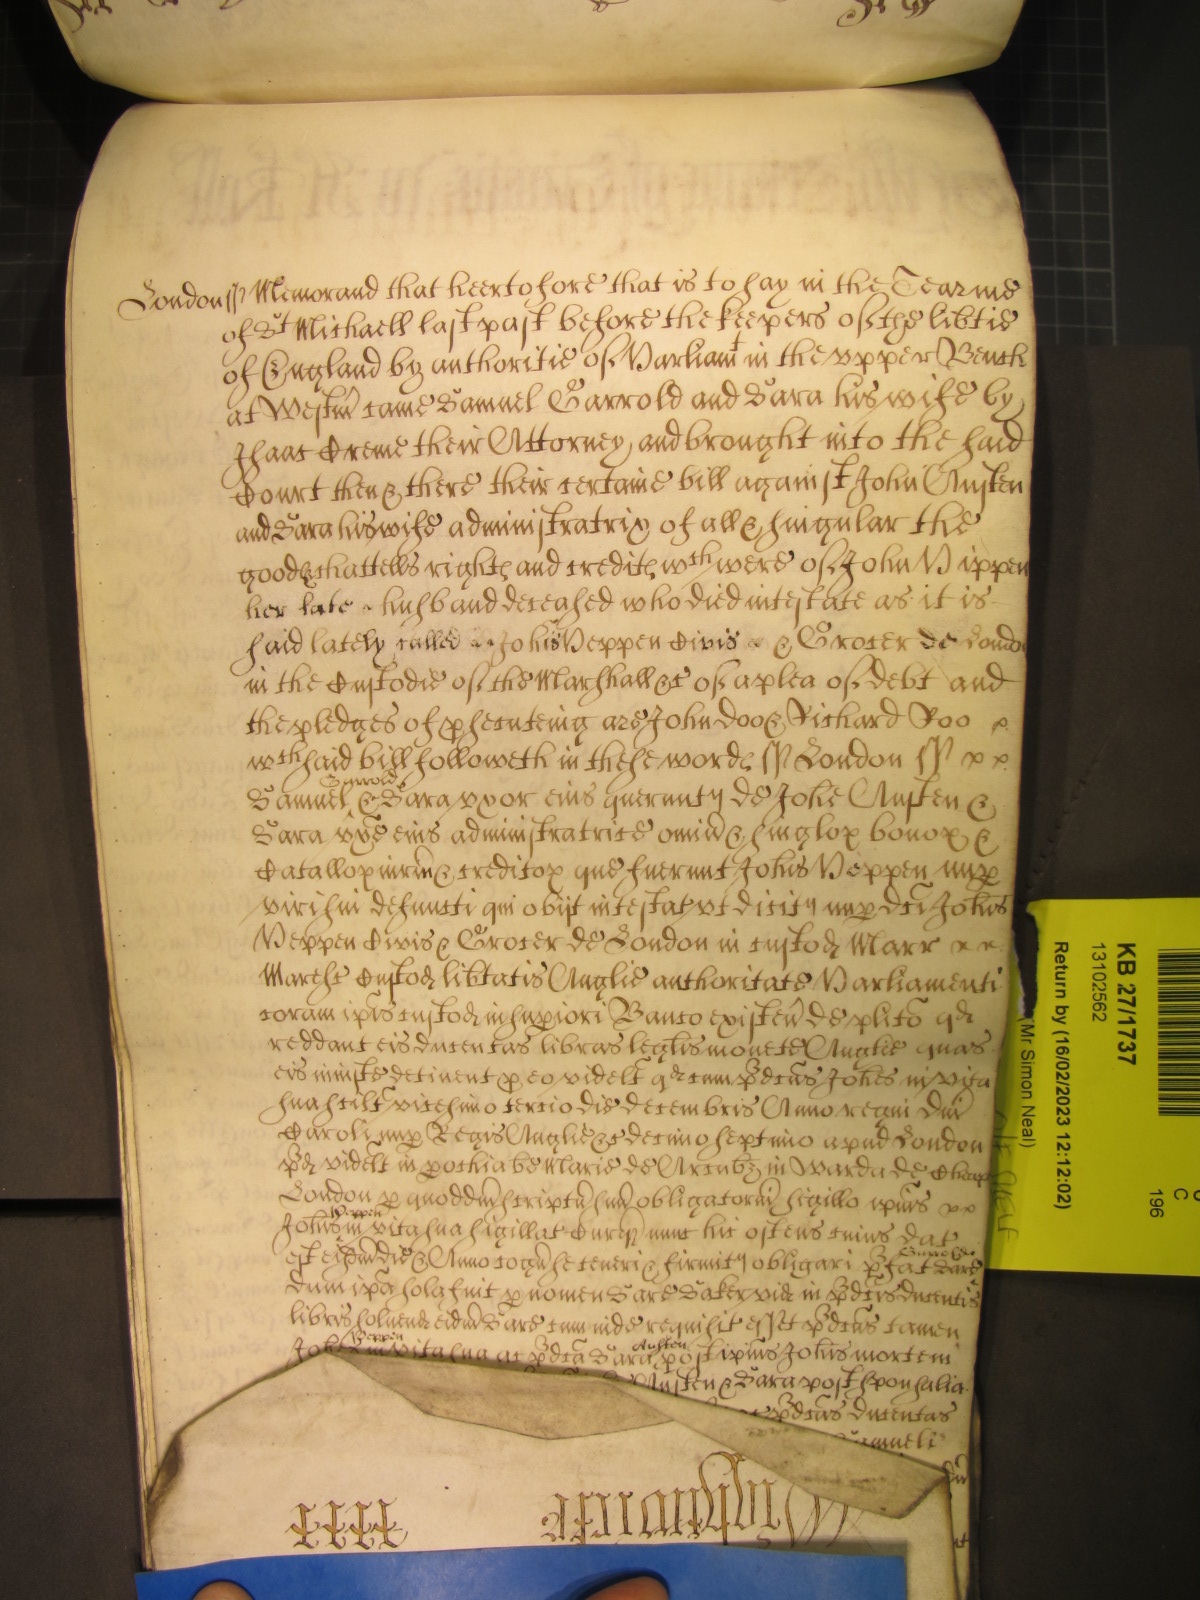 London ss Memorand that heertofore that is to say in the Tearme
of St Michaell last past before the keepers of the libtie
of England by authoritie of Parliamt in the vpper Bench
at Westm̄ came Samuel Garrold and Sara his wife by
Isaac Creme their Attorney, and brought into the said
Court then & there their certaine bill against John Austen
and Sara his wife administratrix of all & singular the
goods chattells rights and credits wch were of John Peppen
her late husband deceased who died intestate as it is
said lately called Johis Peppen Civis & Grocer de London
in the Custodie of the Marshall &c of a plea of debt and
the pledges of psecuteing are John Doo & Richard Roo
wch said bill followeth in these words ss London ss
Samuel Garrold & Sara vxor eius querunt de Johe Austen &
Sara vxe eius administratrice omiu & singlor bonor &
Catallor iuriu & creditor que fuerunt Johis Peppen nup
viri sui defuncti qui obijt intestat vt dicit nup dci Johis
Peppen Civis & Grocer de London in custod Marr
Maresc Custod libtatis Anglie authoritate Parliamenti
coram ipis custod in supiori Banco existen de plito qd
reddant eis ducentas libras leglis monete Anglie quas
eis iniuste detinent p eo videlt qd cum pdcus Johes in vita
sua scilt vicesimo tercio die decembris Anno regni dni
Caroli nup Regis Anglie &c decimo septimo apud London
pd videlt in pochia be Marie de Arcubz in Warda de Cheap
London p quoddm scriptu suu obligatoriu sigillo ipius
Johis Peppen in vita sua sigillat Curieq nunc hic ostens cuius dat
est eisdm die & Anno cogn se teneri & firmit obligari pfat Sare Garrold
dum ipa sola fuit p nomen Sare Baker vid in pdcis ducentis
libris solvend eidm Sare cum inde requisit esset pdcus tamen
Johes Peppin in vita sua ac pdca Sara Austen post ipius Johis mortem
Austen & Sara post sponsalia
pdcas ducentas
Samueli
KB 27/1737
13102562
Return by (16/02/2023 12:12:02)
(Mr Simon Neal)
196
C